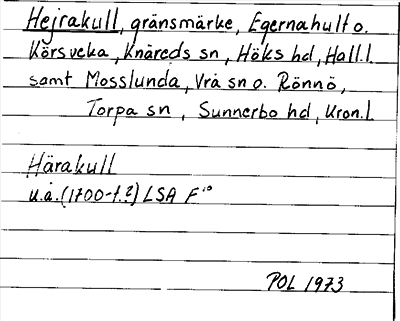 Hejrakull, gränsmärke, Egernahult o.
Körsveka, Knäreds sn, Höks hd, Hall.l.
samt Mosslunda, Vrå sn o. Rönnö,
Torpa sn, Sunnerbo hd, Kron.l.
Härakull
u.å. (1700-t.?) LSA F10
POL 1973